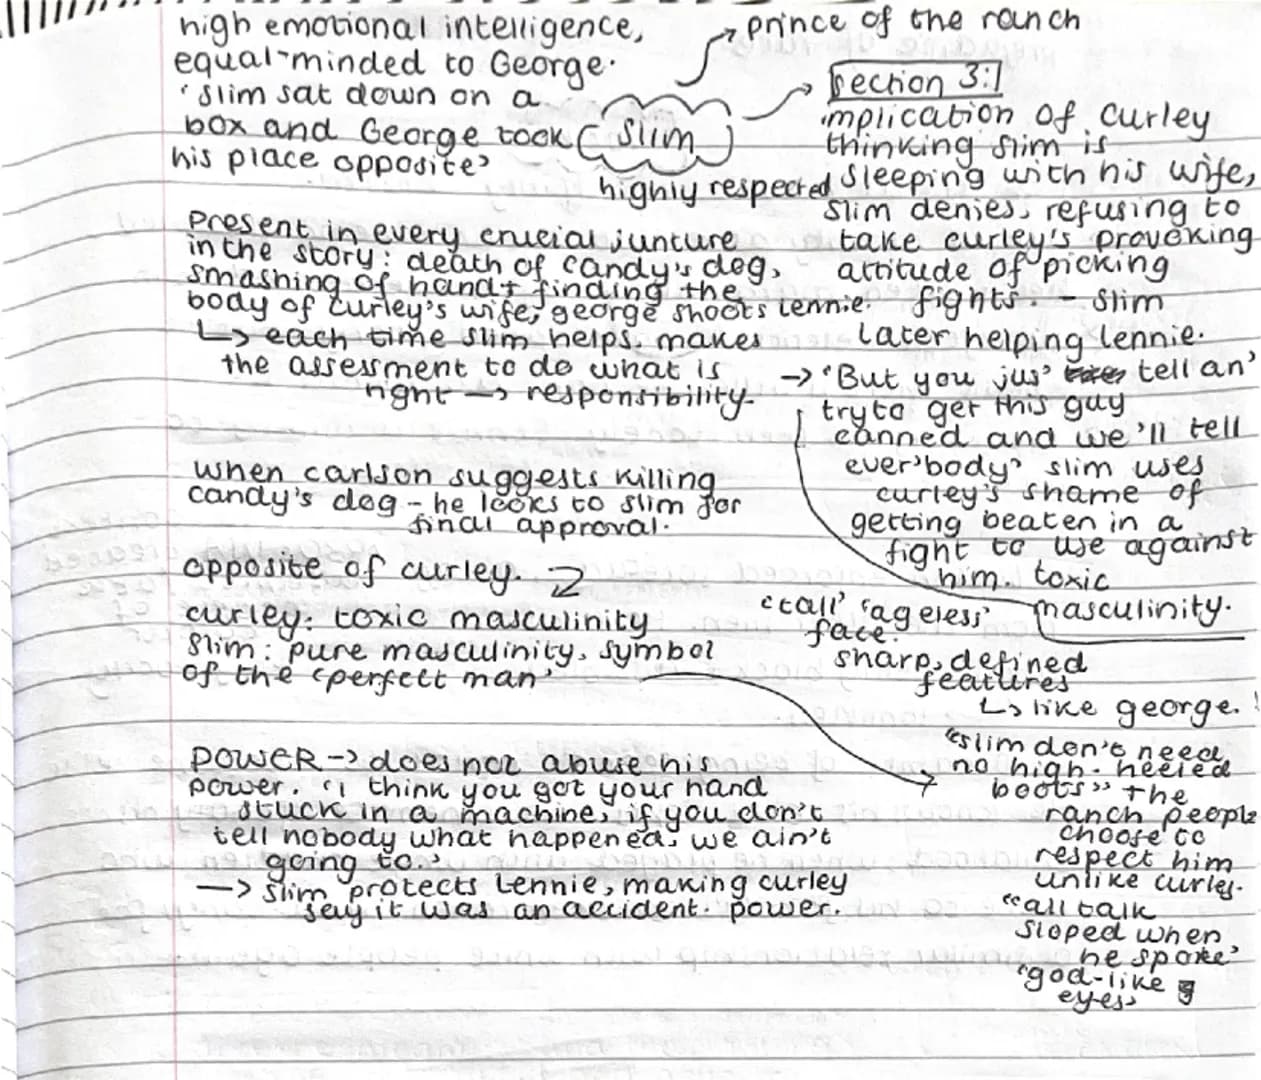 high emotional intelligence,
equal-minded to George.
'Slim sat down on a
box and George took
his place opposite'
Slim
prince of the ranch
highly respected
Section 3:
implication of curley
thinking slim is
sleeping with his wife,
slim denies, refusing to
take curley's provoking
attitude of picking
fights. - slim
later helping lennie.
→ 'But you jus' tell an'
try to get this guy
canned and we'll tell
ever'body' slim uses
curley's shame of
getting beaten in a
fight to use against
him. toxic
masculinity.
Present in every crucial juncture
in the story: death of candy's dog,
smashing of hand + finding the
body of curley's wife, george shoots lennie.
↳ each time slim helps, makes
the assessment to do what is
right → responsibility.
when carlson suggests killing
candy's dog - he looks to slim for
final approval.
opposite of curley.
curley: toxic masculinity
Slim: pure masculinity, symbol
of the 'perfect man'
'tall' 'ageless'
face.
sharp, defined
features
↳ like george.
"slim don't need
no high-heeled
boots" the
ranch people
choose to
respect him
unlike curley.
"all talk
sloped when
he spoke'
'god-like
eyes'
POWER → does not abuse his
power. 'i think you got your hand
stuck in a machine, if you don't
tell nobody what happened, we ain't
going to.'
→ slim protects lennie, making curley
say it was an accident. power.